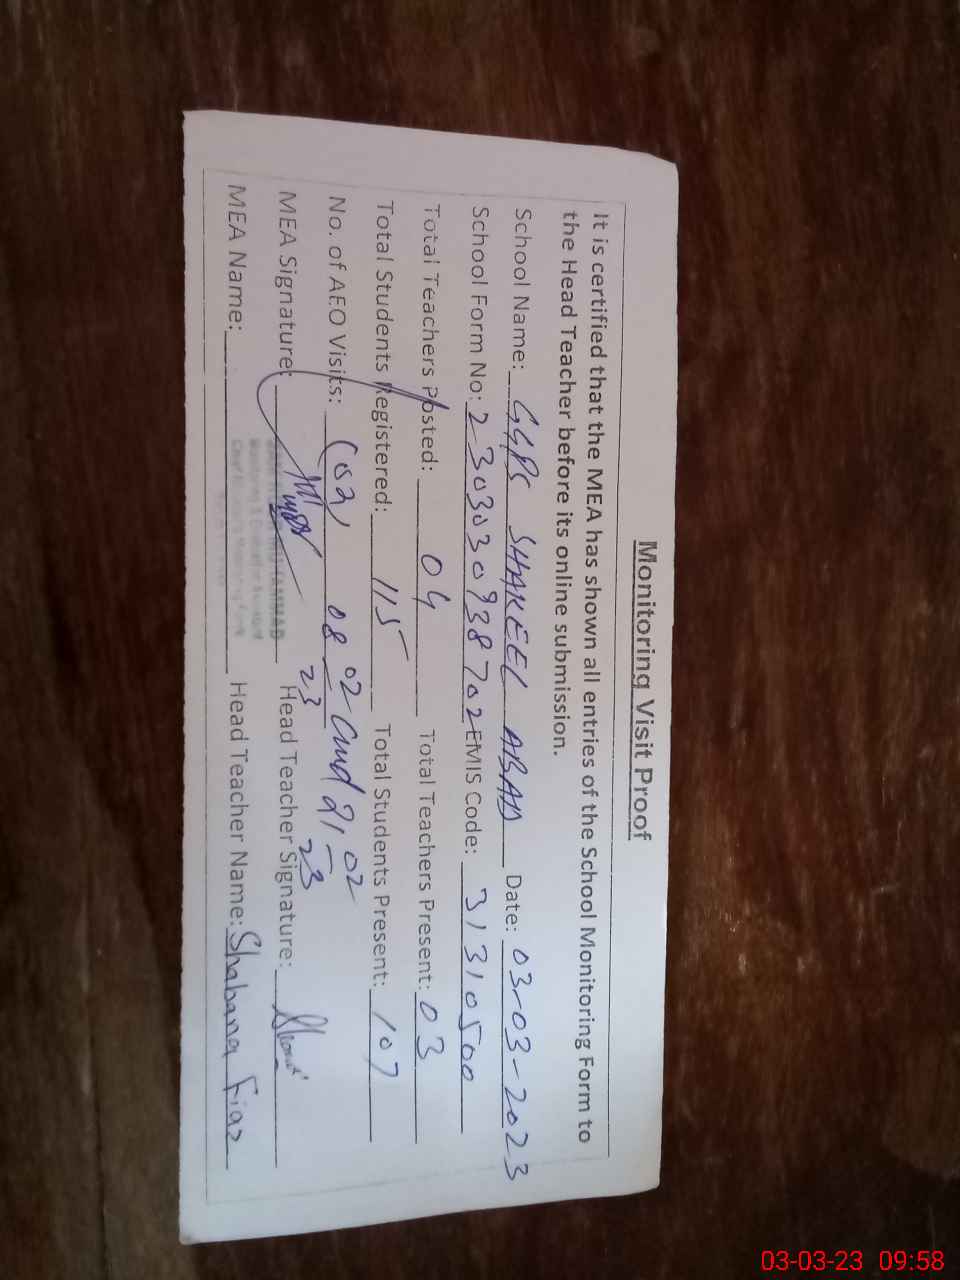 Monitoring Visit Proof
It is certified that the MEA has shown all entries of the School Monitoring Form to
the Head Teacher before its online submission.
School Name: GGPS SHAKEEL ABAD Date: 03-03-2023
School Form No: 2303030938702 EMIS Code: 31310500
Total Teachers Posted: 04 Total Teachers Present: 03
Total Students Registered: 115 Total Students Present: 107
No. of AEO Visits: (02) 08 02 23 and 21 02 23
MEA Signature: Head Teacher Signature:
MEA Name: Head Teacher Name: Shabana Fiaz
03-03-23 09:58